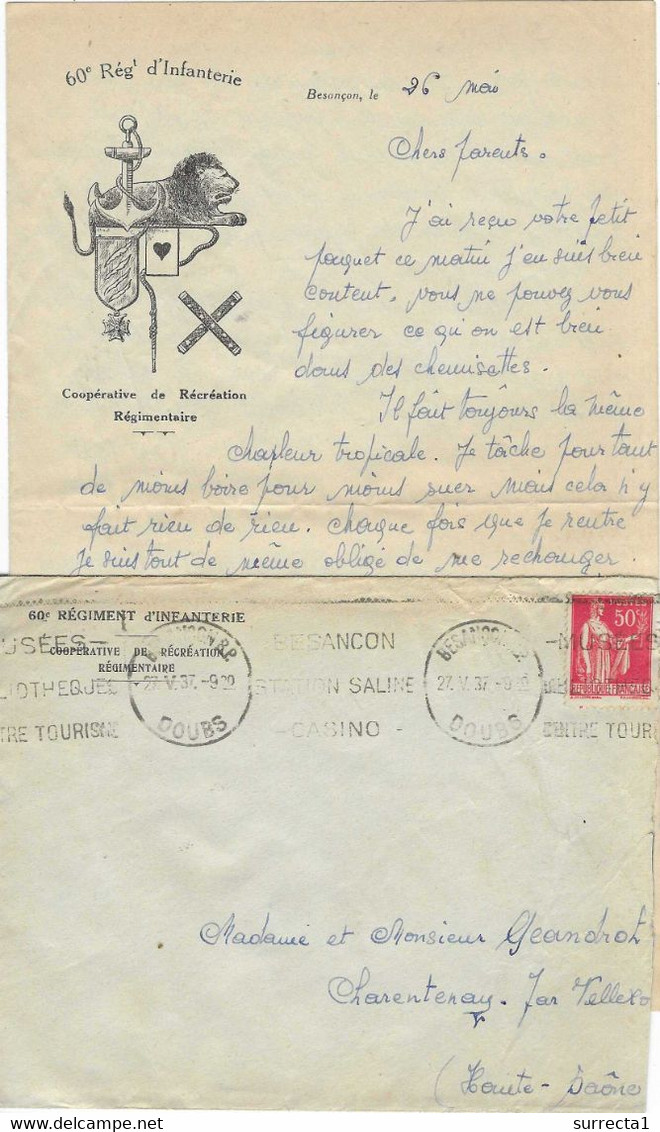 60e Régt d'Infanterie
Besançon, le 26 mai
Chers parents.
J'ai reçu votre petit
paquet ce matin j'en suis bien
content, vous ne pouvez vous
figurer ce qu'on est bien
dans des chemisettes.
Coopérative de Récréation
Régimentaire
Il fait toujours la même
chaleur tropicale. Je tâche pourtant
de moins boire pour moins suer mais cela n'y
fait rien de rien. Chaque fois que je rentre
je suis tout de même obligé de me rechanger.
60e RÉGIMENT d'INFANTERIE
COOPÉRATIVE DE RÉCRÉATION
RÉGIMENTAIRE
BESANÇON
STATION SALINE
- CASINO -
27.V.37.-9 20
DOUBS
27.V.37.-9 20
DOUBS
-MUSÉES-
CENTRE TOURI
50c
RÉPUBLIQUE FRANÇAISE
Madame et Monsieur Geandrot
Charentenay. par Vellexo
(Haute-Saône
www.delcampe.net
surrecta1